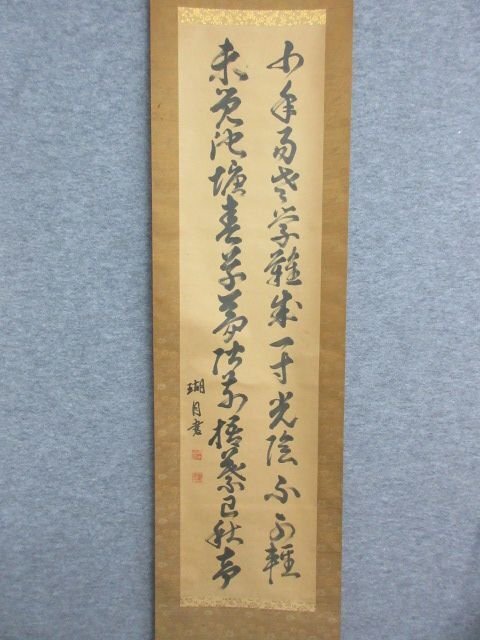 少年易老学難成一寸光陰不可軽
未覚池塘春草夢階前梧葉已秋声
瑚月書